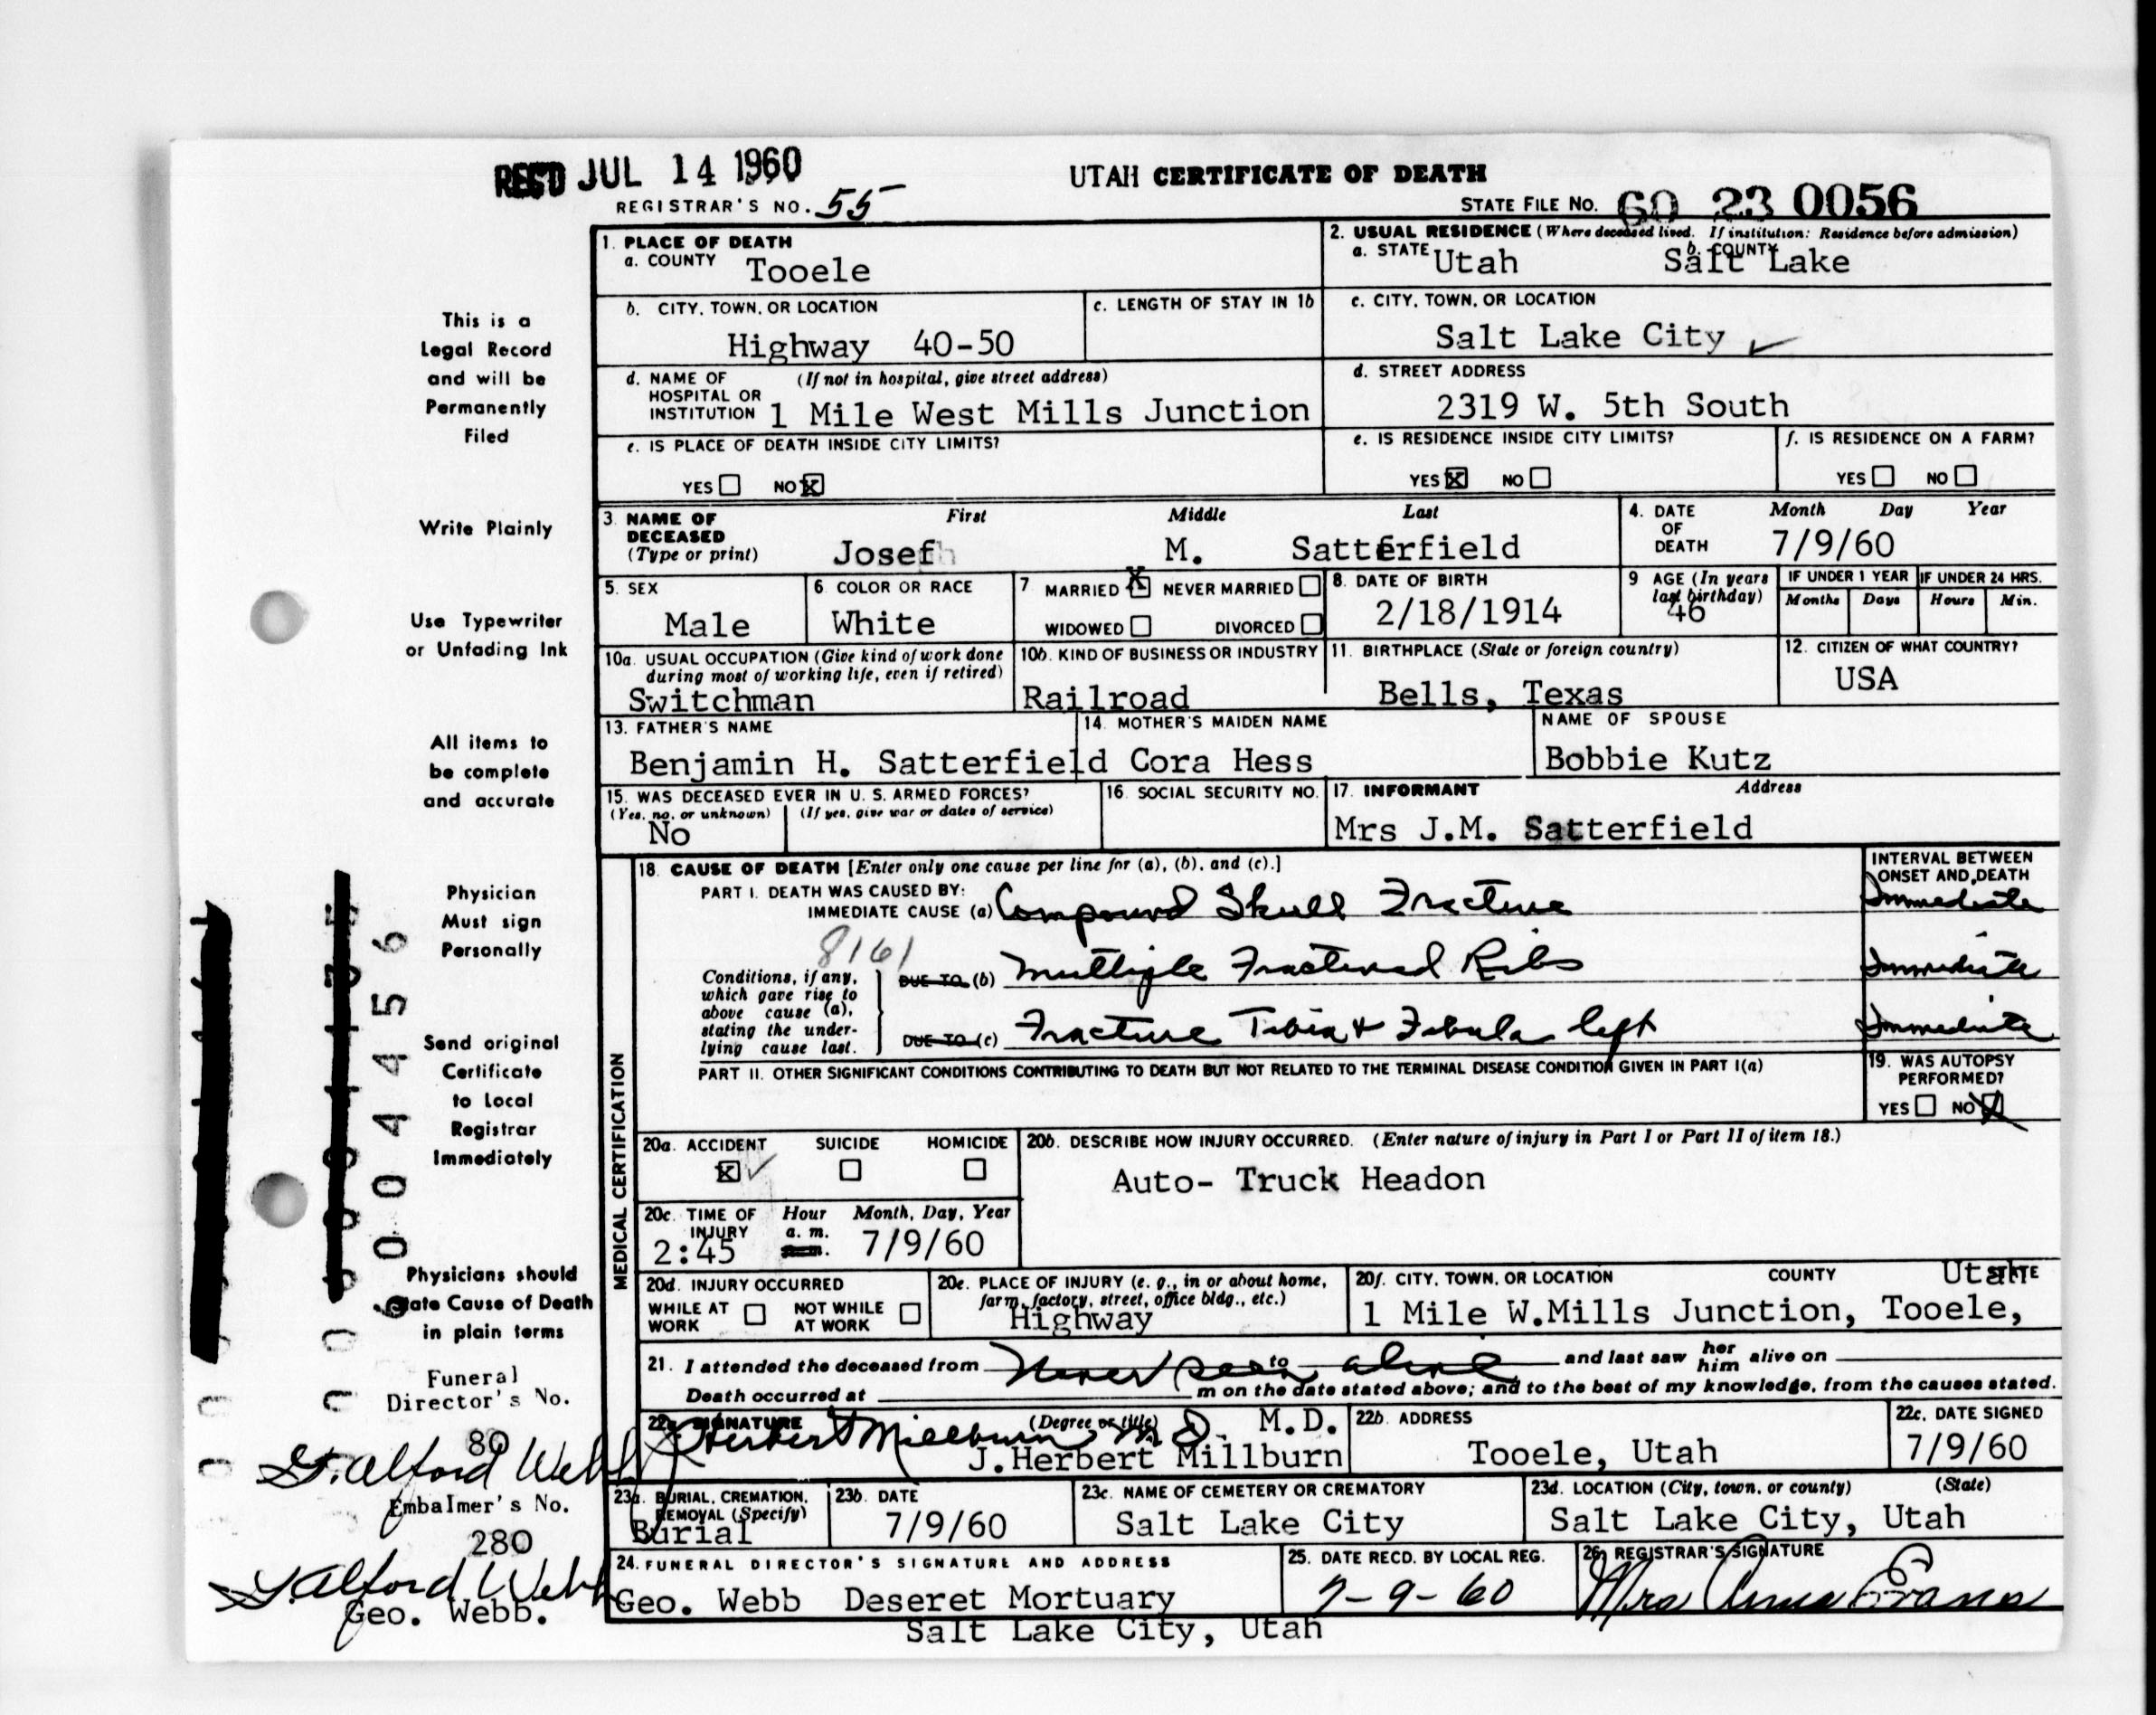 REC'D JUL 14 1960
UTAH CERTIFICATE OF DEATH
REGISTRAR'S NO. 55
STATE FILE NO. 60 23 0056
1. PLACE OF DEATH
a. COUNTY Tooele
2. USUAL RESIDENCE (Where deceased lived. If institution: Residence before admission)
a. STATE Utah b. COUNTY Salt Lake
b. CITY, TOWN, OR LOCATION
Highway 40-50
c. LENGTH OF STAY IN 1b
c. CITY, TOWN, OR LOCATION
Salt Lake City
d. NAME OF HOSPITAL OR INSTITUTION (If not in hospital, give street address)
1 Mile West Mills Junction
d. STREET ADDRESS
2319 W. 5th South
e. IS PLACE OF DEATH INSIDE CITY LIMITS?
YES NO X
e. IS RESIDENCE INSIDE CITY LIMITS?
YES X NO
f. IS RESIDENCE ON A FARM?
YES NO
3. NAME OF DECEASED (Type or print)
First Middle Last
Josef M. Satterfield
4. DATE OF DEATH
Month Day Year
7/9/60
5. SEX
Male
6. COLOR OR RACE
White
7. MARRIED X NEVER MARRIED
WIDOWED DIVORCED
8. DATE OF BIRTH
2/18/1914
9. AGE (In years last birthday)
46
IF UNDER 1 YEAR
Months Days
IF UNDER 24 HRS.
Hours Min.
10a. USUAL OCCUPATION (Give kind of work done during most of working life, even if retired)
Switchman
10b. KIND OF BUSINESS OR INDUSTRY
Railroad
11. BIRTHPLACE (State or foreign country)
Bells, Texas
12. CITIZEN OF WHAT COUNTRY?
USA
13. FATHER'S NAME
Benjamin H. Satterfield
14. MOTHER'S MAIDEN NAME
Cora Hess
NAME OF SPOUSE
Bobbie Kutz
15. WAS DECEASED EVER IN U. S. ARMED FORCES?
(Yes, no, or unknown) (If yes, give war or dates of service)
No
16. SOCIAL SECURITY NO.
17. INFORMANT Address
Mrs J.M. Satterfield
MEDICAL CERTIFICATION
18. CAUSE OF DEATH [Enter only one cause per line for (a), (b), and (c).]
INTERVAL BETWEEN ONSET AND DEATH
PART I. DEATH WAS CAUSED BY:
IMMEDIATE CAUSE (a) Compound Skull Fracture Immediate
8161
Conditions, if any, which gave rise to above cause (a), stating the underlying cause last.
DUE TO (b) Multiple Fractured Ribs Immediate
DUE TO (c) Fracture Tibia & Fibula left Immediate
PART II. OTHER SIGNIFICANT CONDITIONS CONTRIBUTING TO DEATH BUT NOT RELATED TO THE TERMINAL DISEASE CONDITION GIVEN IN PART I(a)
19. WAS AUTOPSY PERFORMED?
YES NO X
20a. ACCIDENT SUICIDE HOMICIDE
X
20b. DESCRIBE HOW INJURY OCCURRED. (Enter nature of injury in Part I or Part II of item 18.)
Auto- Truck Headon
20c. TIME OF INJURY Hour Month, Day, Year
2:45 a. m. p. m. 7/9/60
20d. INJURY OCCURRED
WHILE AT WORK NOT WHILE AT WORK
20e. PLACE OF INJURY (e. g., in or about home, farm, factory, street, office bldg., etc.)
Highway
20f. CITY, TOWN, OR LOCATION COUNTY STATE
1 Mile W.Mills Junction, Tooele, Utah
21. I attended the deceased from Never seen to alive and last saw her him alive on
Death occurred at m on the date stated above; and to the best of my knowledge, from the causes stated.
22a. SIGNATURE (Degree or title)
J Herbert Millburn M.D. M.D.
J.Herbert Millburn
22b. ADDRESS
Tooele, Utah
22c. DATE SIGNED
7/9/60
23a. BURIAL, CREMATION, REMOVAL (Specify)
Burial
23b. DATE
7/9/60
23c. NAME OF CEMETERY OR CREMATORY
Salt Lake City
23d. LOCATION (City, town, or county) (State)
Salt Lake City, Utah
24. FUNERAL DIRECTOR'S SIGNATURE AND ADDRESS
Geo. Webb Deseret Mortuary
Salt Lake City, Utah
25. DATE RECD. BY LOCAL REG.
7-9-60
26. REGISTRAR'S SIGNATURE
Mrs Anna Evans
This is a
Legal Record
and will be
Permanently
Filed
Write Plainly
Use Typewriter
or Unfading Ink
All items to
be complete
and accurate
Physician
Must sign
Personally
Send original
Certificate
to Local
Registrar
Immediately
Physicians should
State Cause of Death
in plain terms
Funeral
Director's No.
80
G. Alford Webb
Embalmer's No.
280
G. Alford Webb
Geo. Webb.
6004456